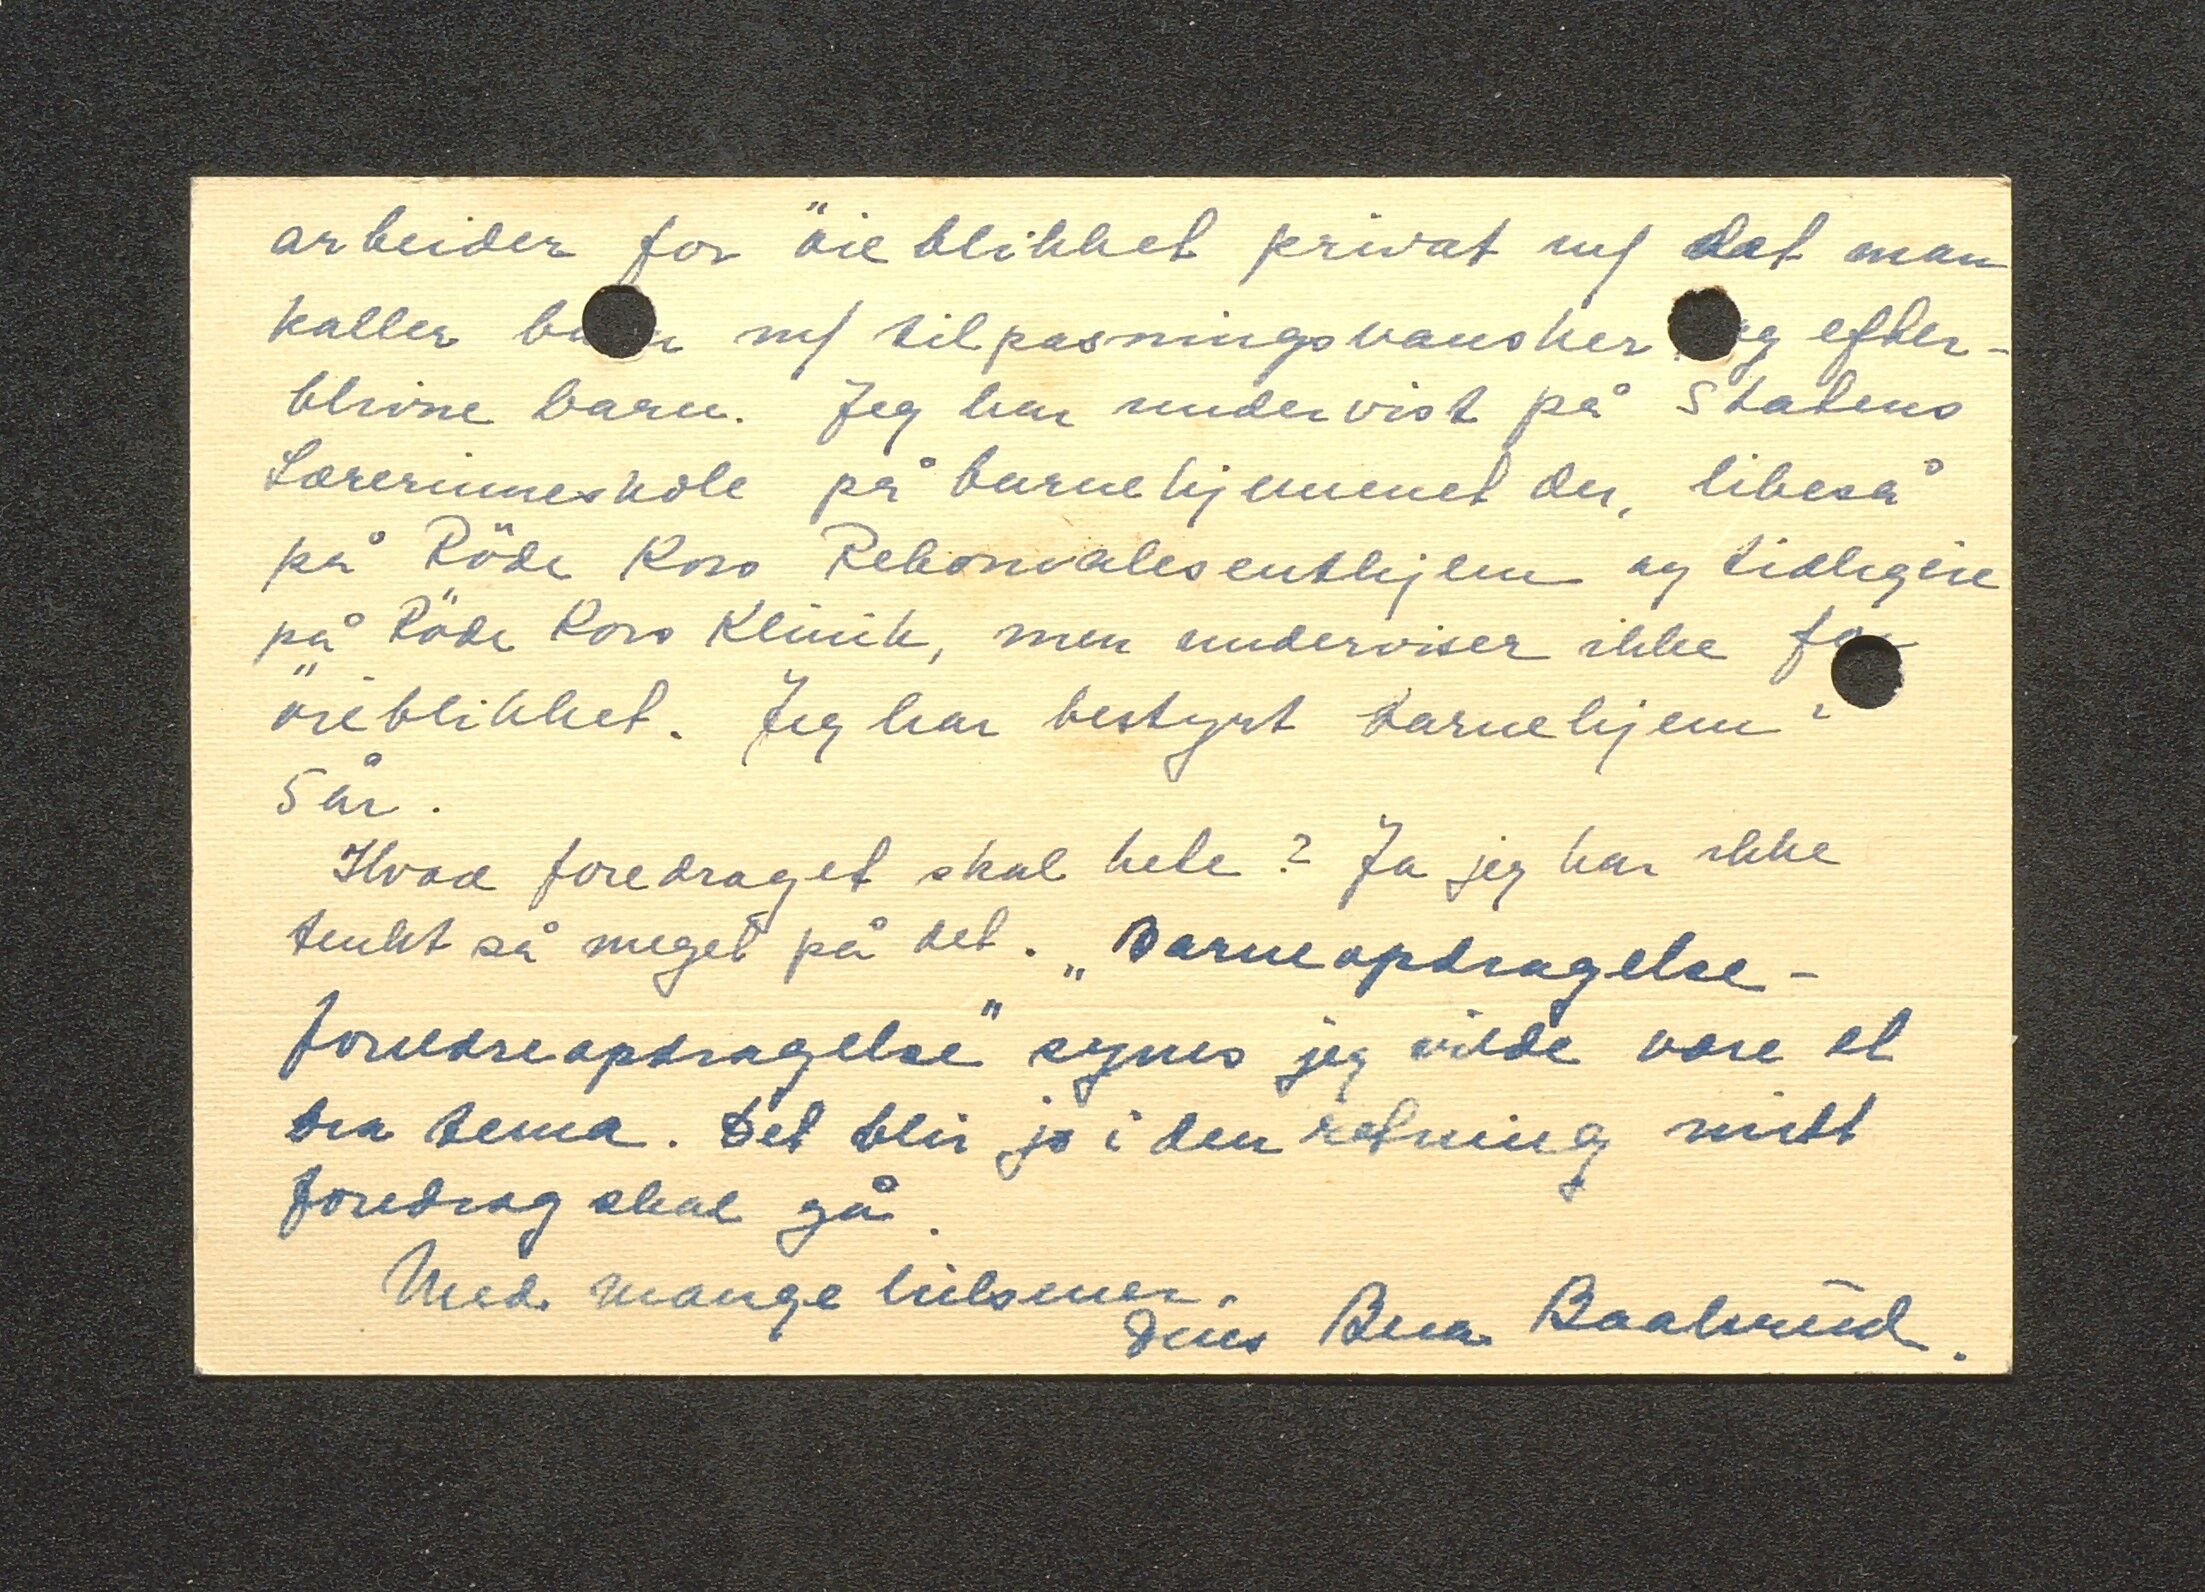 arbeider for öieblikket privat m/ det man
kaller barn m/ tilpasningsvansker og efter-
blivne barn. Jeg har undervist på Statens
Lærerinneskole på barnehjemmet der, likeså
på Röde Kors Rekonvalesenthjem og tidligere
på Röde Kors Klinik, men underviser ikke for
öieblikket. Jeg har bestyrt barnehjem i
5 år.
Hvad foredraget skal hete? Ja jeg har ikke
tenkt så meget på det. „Barneopdragelse-
foreldreopdragelse" synes jeg vilde være et
bra tema. Det blir jo i den retning mitt
foredrag skal gå.
Med mange hilsener.
Deres Baalsrud.